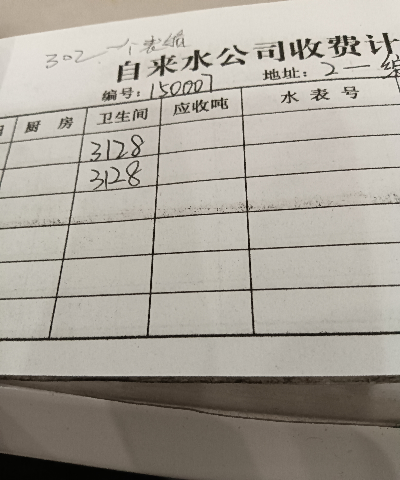 302 一个表
自来水公司收费计
编号: 150007 地址: 2一
厨房 卫生间 应收吨 水表号
3128
3128